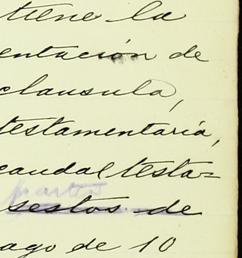 tiene la
entación de
clausula,
testamentaria,
caudal testa=
partes
sestos de
ago de 10